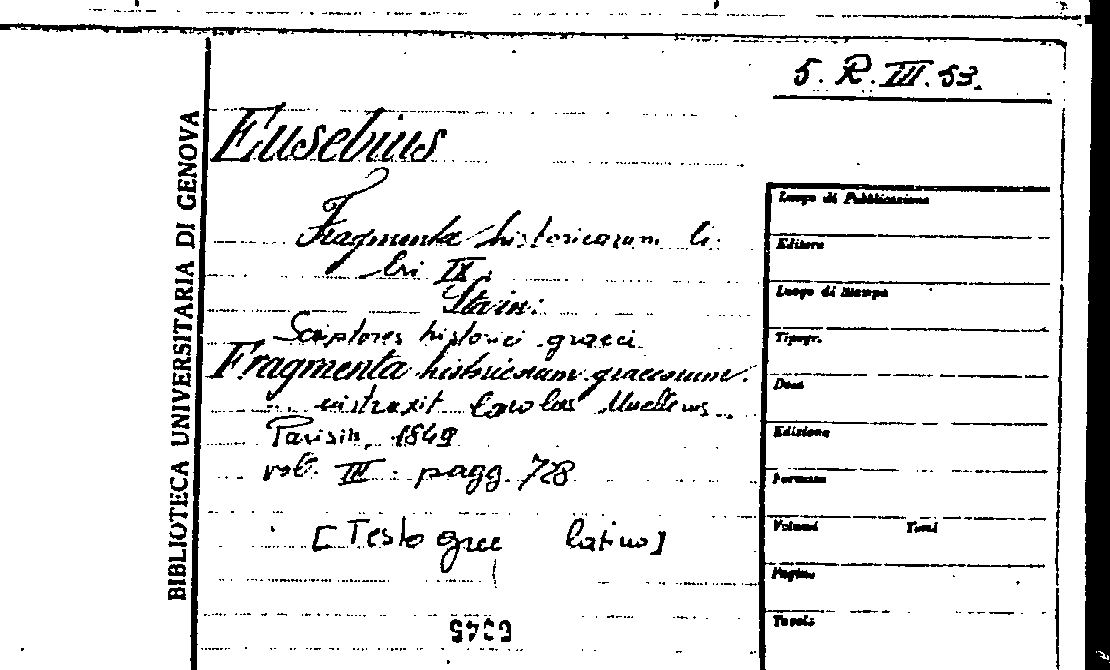 5. R. III. 53.
BIBLIOTECA UNIVERSITARIA DI GENOVA
Eusebius
Fragmenta historicorum li-
bri IX.
Sta in:
Scriptores historici graeci
Fragmenta historicorum graecorum.
Carolus Muellerus
Parisiis, 1849
vol. III. pagg. 728
[Testo grec latino]
Luogo di Pubblicazione
Editore
Luogo di Stampa
Tipogr.
Data
Edizione
Formato
Volumi Tomi
Pagine
Tavole